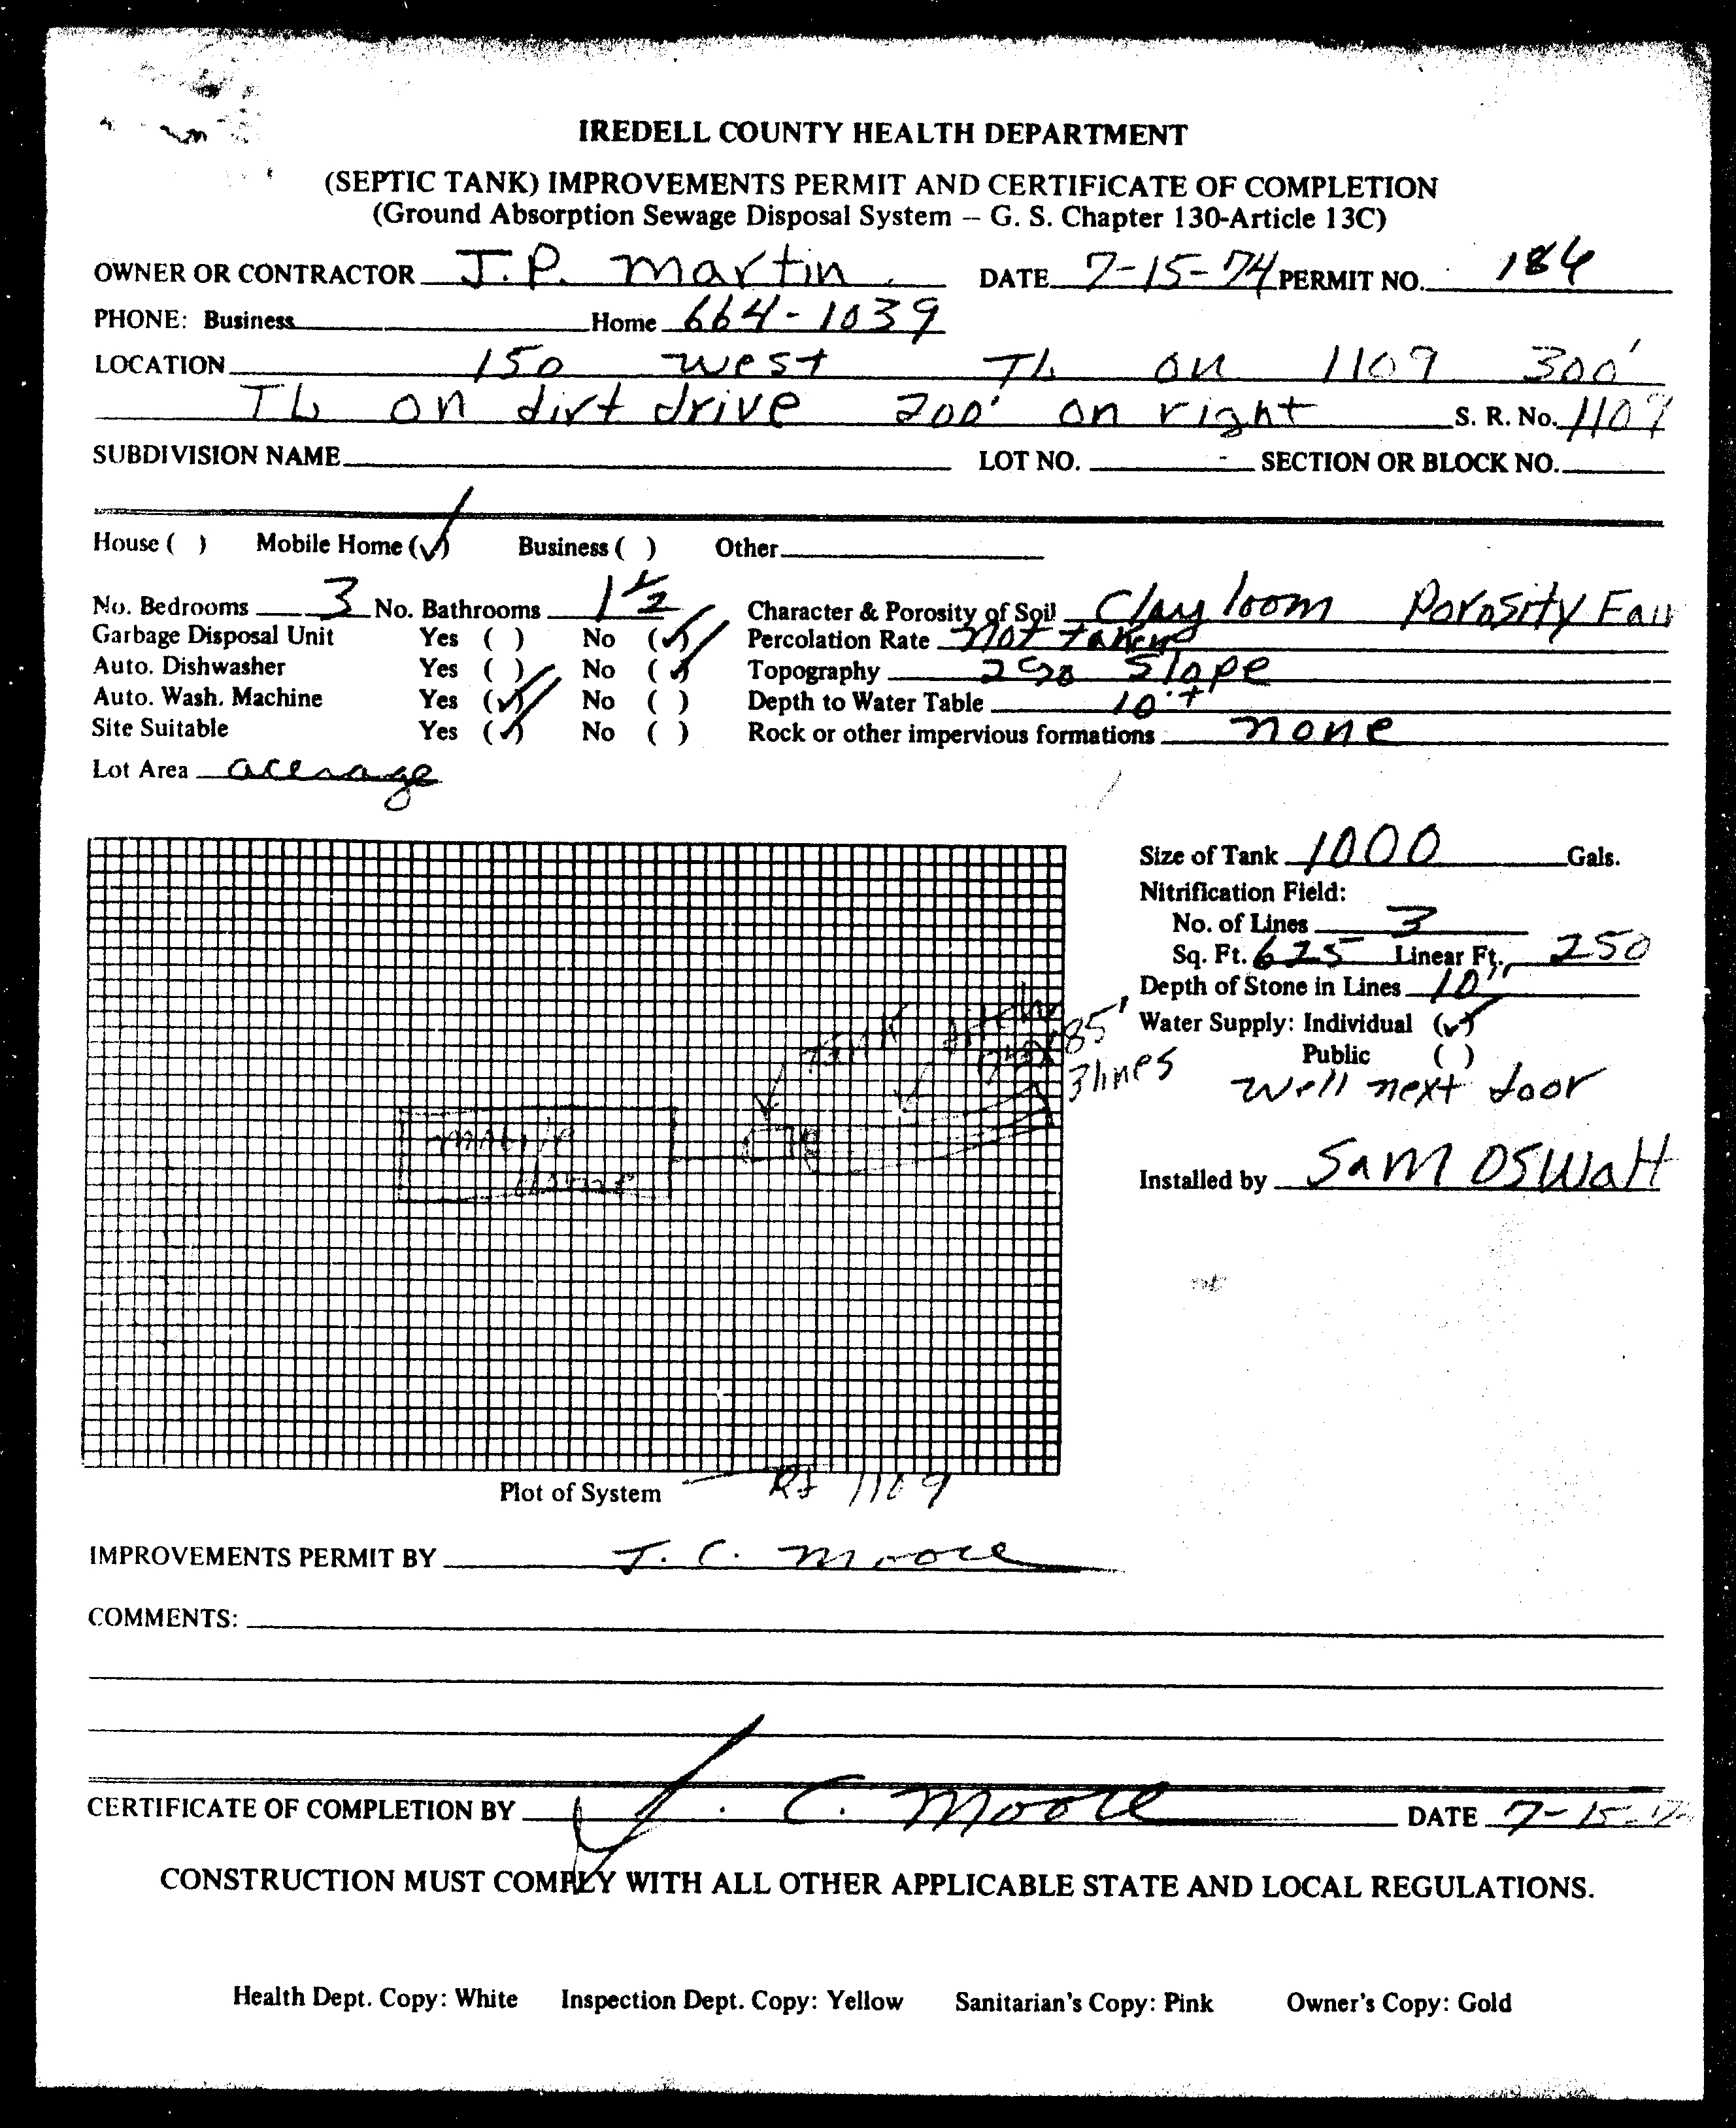 IREDELL COUNTY HEALTH DEPARTMENT
(SEPTIC TANK) IMPROVEMENTS PERMIT AND CERTIFICATE OF COMPLETION
(Ground Absorption Sewage Disposal System – G. S. Chapter 130-Article 13C)
OWNER OR CONTRACTOR J.P. Martin DATE 7-15-74 PERMIT NO. 186
PHONE: Business Home 664-1039
LOCATION 150 west TL on 1109 300'
TL on dirt drive 200' on right S. R. No. 1109
SUBDIVISION NAME LOT NO. SECTION OR BLOCK NO.
House ( ) Mobile Home (✓) Business ( ) Other
No. Bedrooms 3 No. Bathrooms 1 1/2 Character & Porosity of Soil Clay loom Porosity Fair
Garbage Disposal Unit Yes ( ) No (✓) Percolation Rate not taken
Auto. Dishwasher Yes ( ) No (✓) Topography slope
Auto. Wash. Machine Yes (✓) No ( ) Depth to Water Table 10'+
Site Suitable Yes (✓) No ( ) Rock or other impervious formations none
Lot Area acerage
Size of Tank 1000 Gals.
Nitrification Field:
No. of Lines 3
Sq. Ft. 625 Linear Ft. 250
Depth of Stone in Lines 10"
Water Supply: Individual (✓)
Public ( )
well next door
Installed by Sam Oswalt
Tank
85'
3 lines
mobile
Home
Plot of System Rd 1109
IMPROVEMENTS PERMIT BY J. C. Moore
COMMENTS:
CERTIFICATE OF COMPLETION BY J. C. Moore DATE 7-15-74
CONSTRUCTION MUST COMPLY WITH ALL OTHER APPLICABLE STATE AND LOCAL REGULATIONS.
Health Dept. Copy: White Inspection Dept. Copy: Yellow Sanitarian's Copy: Pink Owner's Copy: Gold